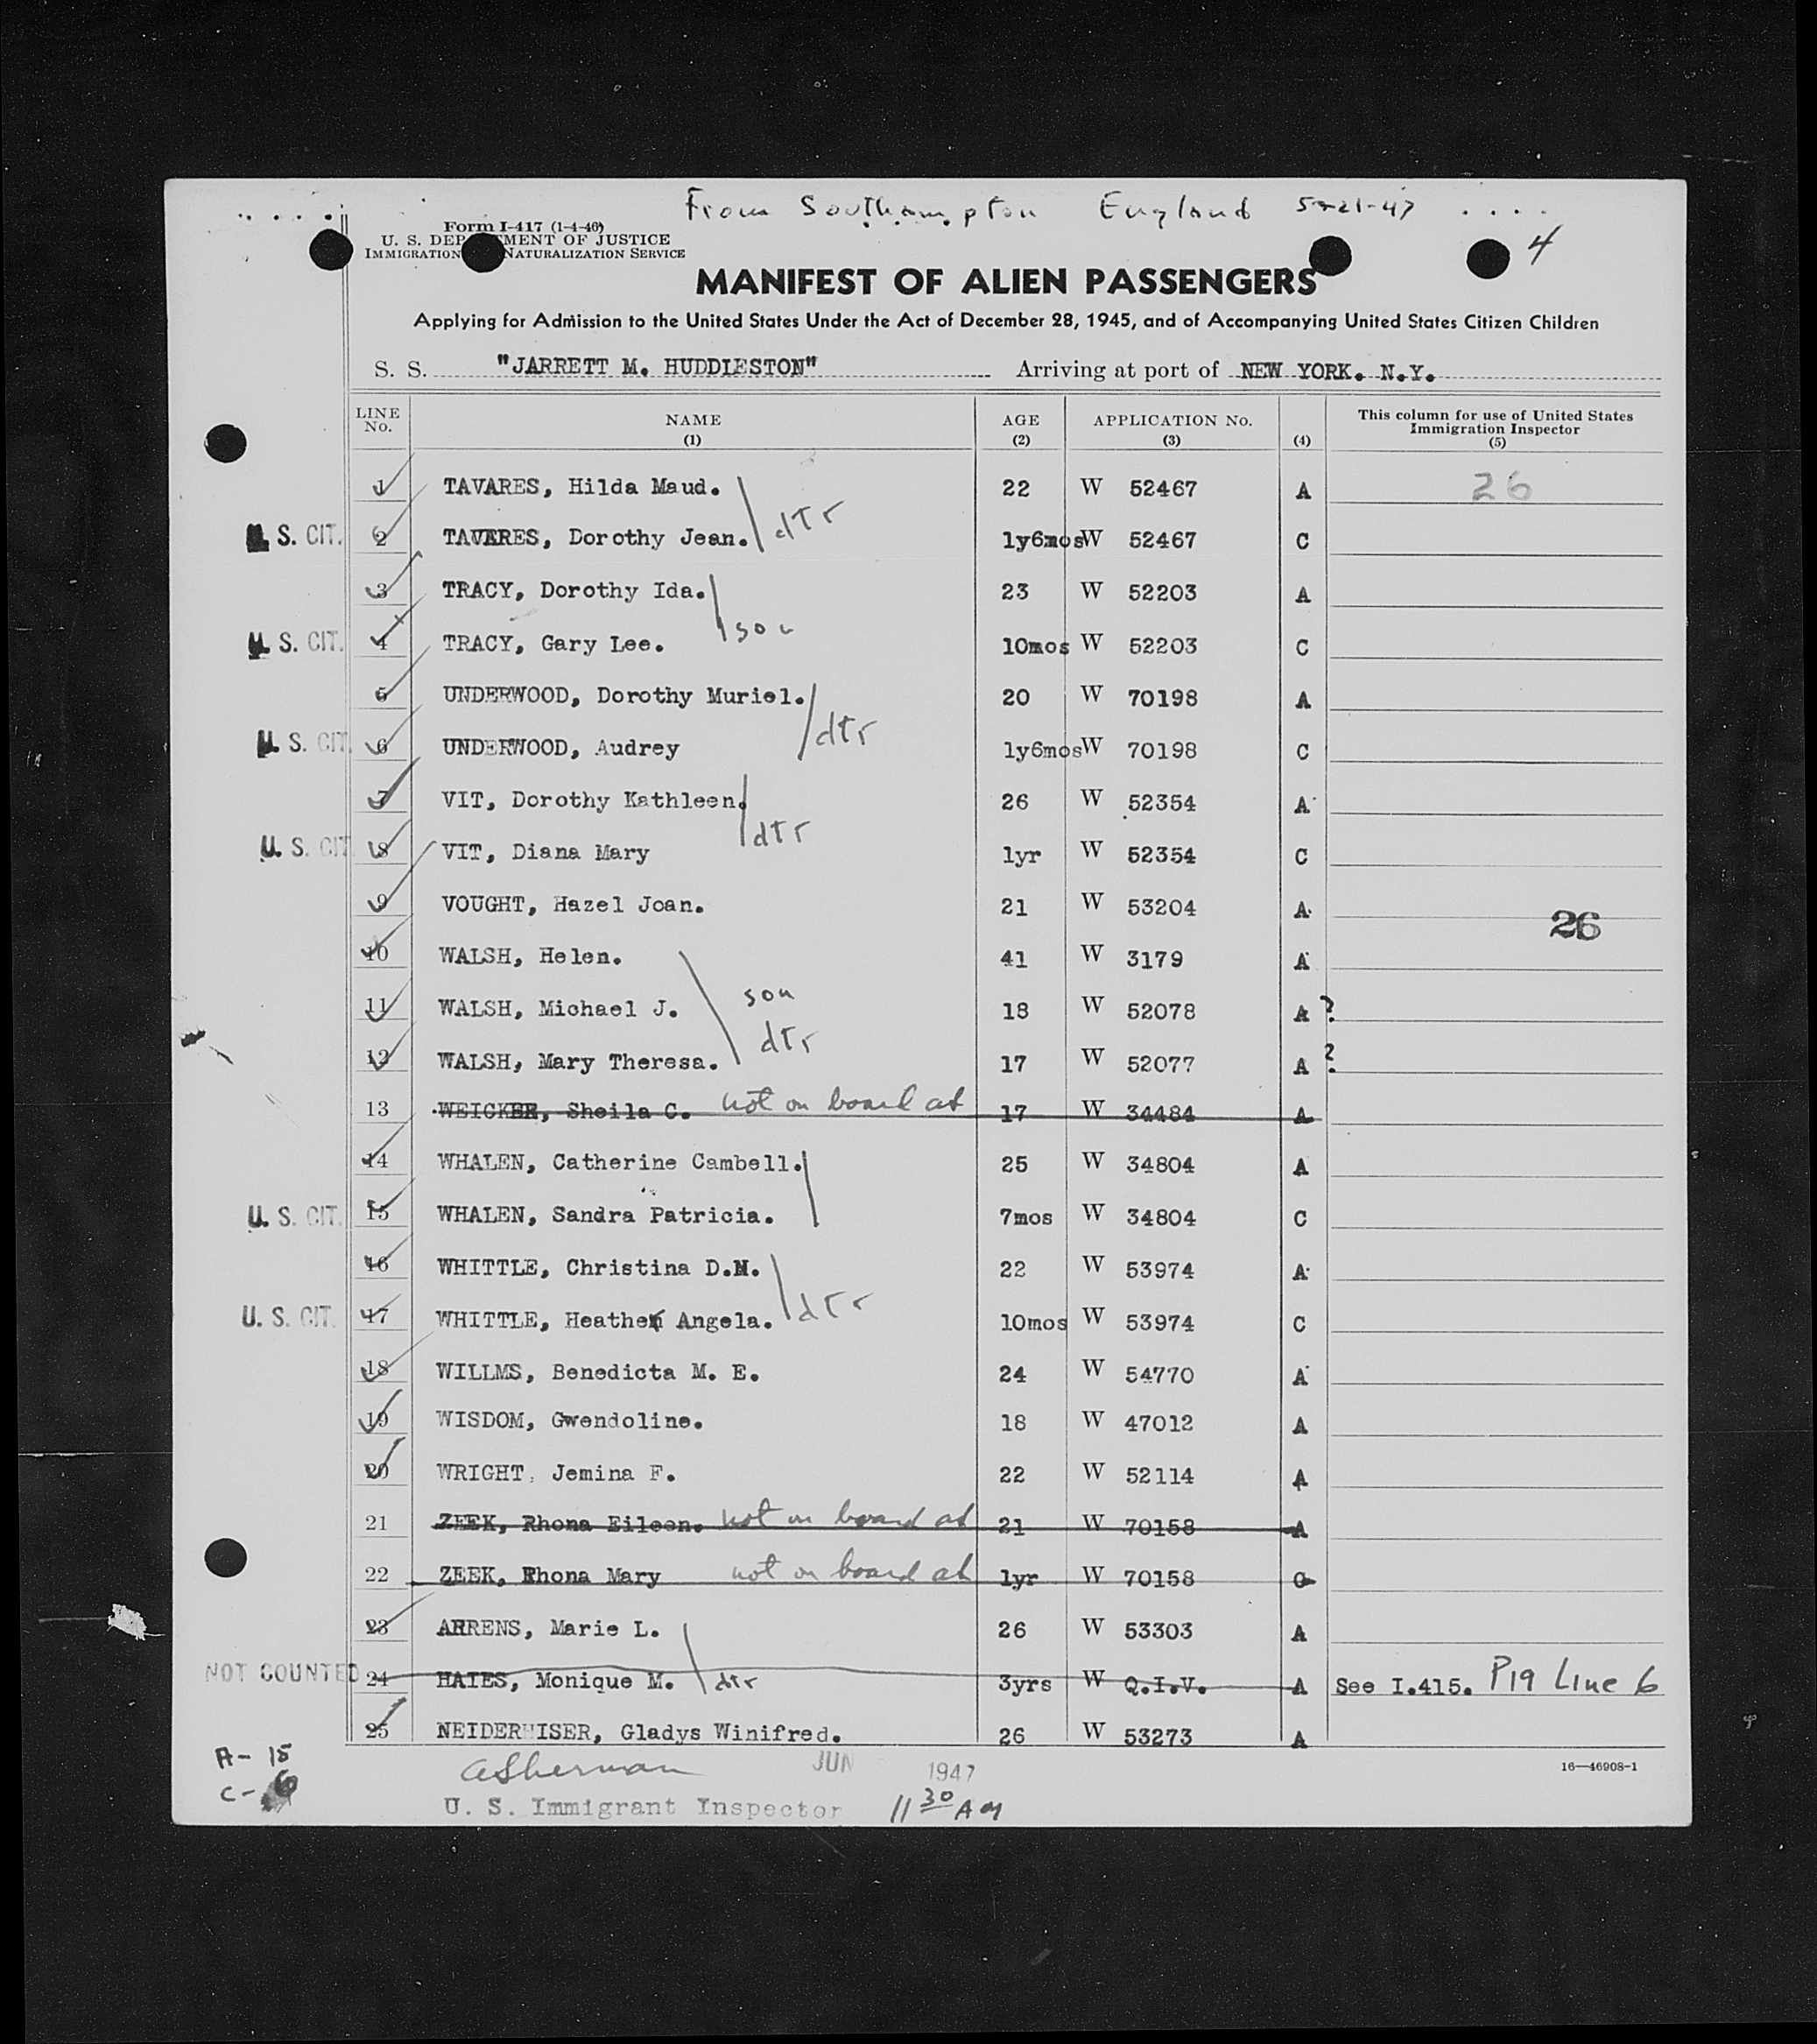 From Southampton England 5-21-47
4
Form I-417 (1-4-46)
U. S. DEP MENT OF JUSTICE
IMMIGRATION NATURALIZATION SERVICE
MANIFEST OF ALIEN PASSENGERS
Applying for Admission to the United States Under the Act of December 28, 1945, and of Accompanying United States Citizen Children
S. S. "JARRETT M. HUDDLESTON" Arriving at port of NEW YORK. N.Y.
LINE No. NAME (1) AGE (2) APPLICATION No. (3) (4) This column for use of United States Immigration Inspector (5)
1 TAVARES, Hilda Maud. 22 W 52467 A 26
U. S. CIT. 2 TAVARES, Dorothy Jean. dtr 1y6mos W 52467 C
3 TRACY, Dorothy Ida. 23 W 52203 A
U. S. CIT. 4 TRACY, Gary Lee. son 10mos W 52203 C
5 UNDERWOOD, Dorothy Muriel. 20 W 70198 A
U. S. CIT. 6 UNDERWOOD, Audrey dtr 1y6mos W 70198 C
7 VIT, Dorothy Kathleen. 26 W 52354 A
U. S. CIT. 8 VIT, Diana Mary dtr 1yr W 52354 C
9 VOUGHT, Hazel Joan. 21 W 53204 A 26
10 WALSH, Helen. 41 W 3179 A
11 WALSH, Michael J. son 18 W 52078 A ?
12 WALSH, Mary Theresa. dtr 17 W 52077 A ?
13 WEICKER, Sheila C. not on board at 17 W 34484 A
14 WHALEN, Catherine Cambell. 25 W 34804 A
U. S. CIT. 15 WHALEN, Sandra Patricia. 7mos W 34804 C
16 WHITTLE, Christina D.M. 22 W 53974 A
U. S. CIT. 17 WHITTLE, Heather Angela. dtr 10mos W 53974 C
18 WILLMS, Benedicta M. E. 24 W 54770 A
19 WISDOM, Gwendoline. 18 W 47012 A
20 WRIGHT, Jemina F. 22 W 52114 A
21 ZEEK, Rhona Eileen. not on board at 21 W 70158 A
22 ZEEK, Rhona Mary not on board at 1yr W 70158 C
23 AHRENS, Marie L. 26 W 53303 A
NOT COUNTED 24 HAIES, Monique M. dtr 3yrs W Q.I.V. A See I.415. P19 Line 6
25 NEIDERHISER, Gladys Winifred. 26 W 53273 A
A- 15
C- 6
asherman JUN 1947
16—46908-1
U. S. Immigrant Inspector 11 30 AM